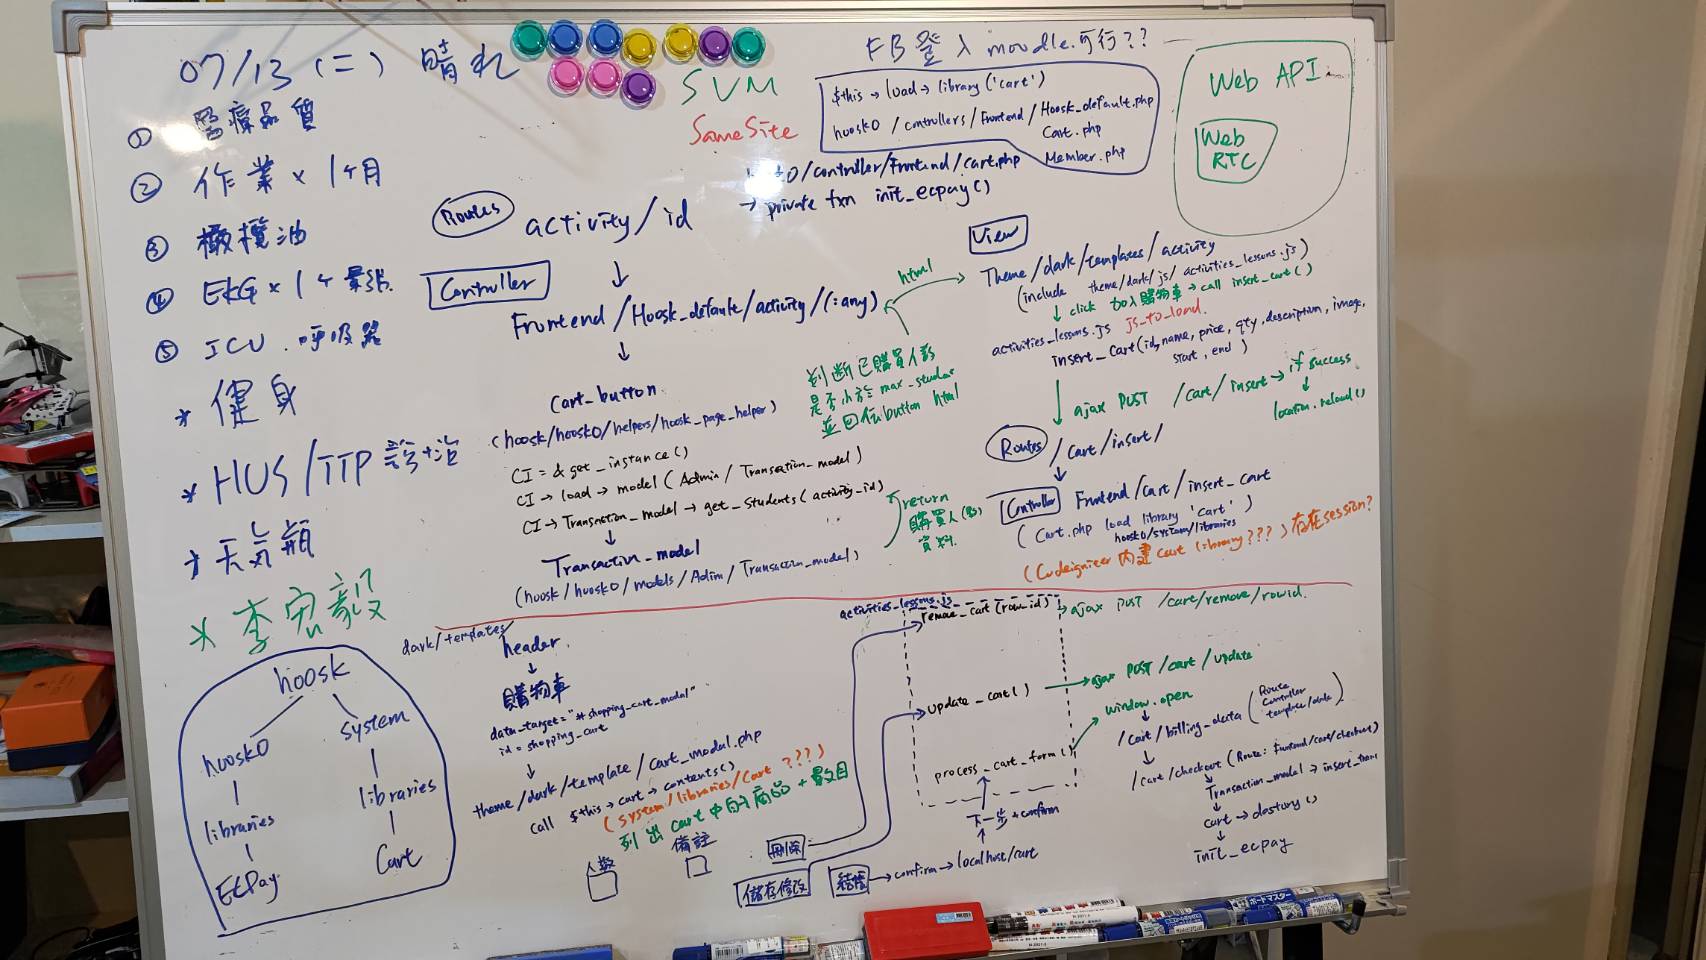 07/13 (二) 晴れ
① 醫療品質
② 作業 × 1ヶ月
③ 橄欖油
④ EKG × 1ヶ
⑤ ICU. 呼吸器
* 健身
* HUS/TTP 診治
* 天気瓶
* 李宏毅
SVM
SameSite
FB 登入 moodle.可行??
$this → load → library ('cart')
hoosk0 / controllers / Frontend / Hoosk_default.php
Cart.php
Member.php
0/controller/Frontend/cart.php
→ private fxn init_ecpay()
Web API
Web
RTC
Routes
activity/id
Controller
Frontend/Hoosk_default/activity/(:any)
Cart_button
(hoosk/hoosk0/helpers/hoosk_page_helper)
CI = & get_instance()
CI → load → model (Admin / Transaction_model)
CI → Transaction_model → get_students (activity_id)
Transaction_model
(hoosk/hoosk0/models/Adim/Transaction_model)
html
判斷已購買人數
是否小於 max_student
並回傳button html
return
購買人(數)
資料.
View
Theme/dark/templates/activity
(include theme/dark/js/activities_lessons.js)
click 加入購物車 → call insert_cart()
activities_lessons.js js_to_load.
insert_cart(id,name,price,qty,description,image,
start, end)
ajax POST /cart/insert → if success
location.reload()
Routes /cart/insert/
Controller Frontend/cart/insert_cart
(Cart.php load library 'cart')
hoosk0/system/libraries
(Codeigniter 內建 Cart library???) 存在session?
dark/templates/
header
購物車
data_target="#shopping_cart_modal"
id = shopping_cart
theme/dark/template/cart_modal.php
call $this → cart → contents()
(system/libraries/Cart ???)
列出 cart 中的商品 + 數目
人數
備註
刪除
儲存修改
結帳 → confirm → localhost/cart
下一步 + confirm
activities_lessons.js
remove_cart (row_id) → ajax POST /cart/remove/rowid.
update_cart() → ajax POST /cart/update
process_cart_form()
window.open
/cart/billing_data (Route
Controller
template/data)
/cart/checkout (Route: frontend/cart/checkout)
Transaction_model → insert_trans
cart → destory()
init_ecpay
hoosk
hoosk0
libraries
ECPay
system
libraries
Cart
ボードマスター